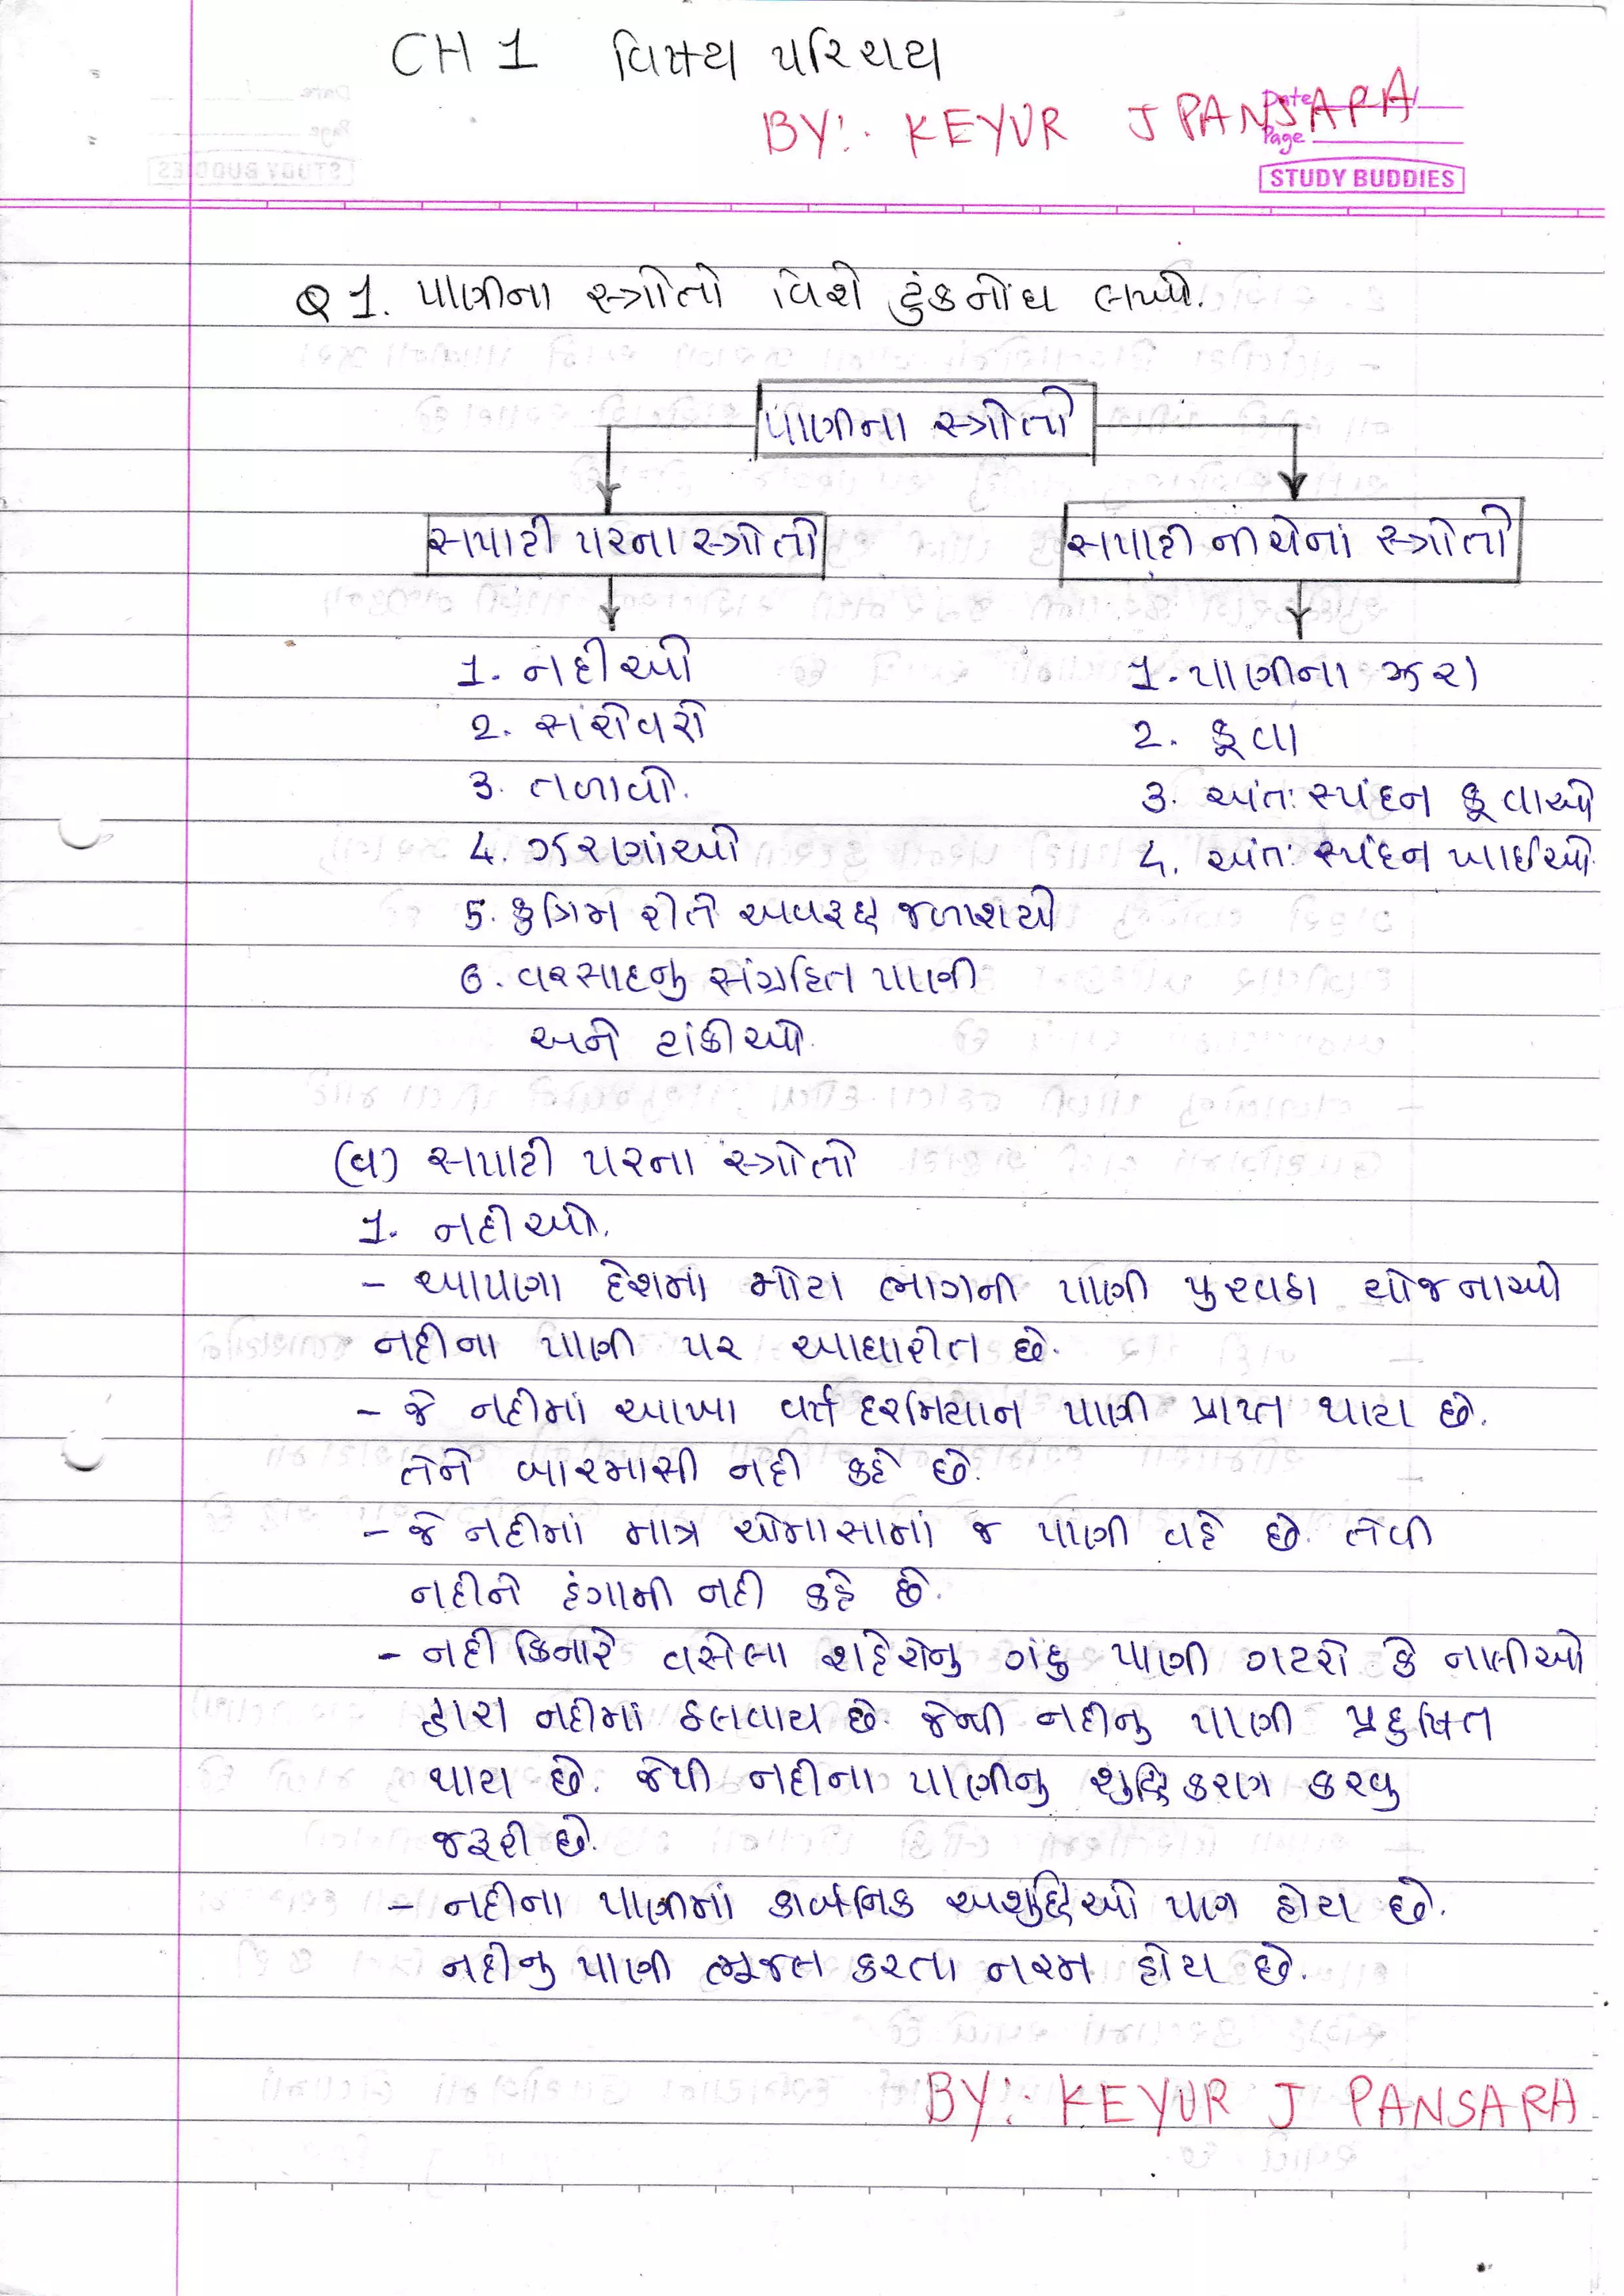 CH 1 વિષય પરિચય
BY:- KEYUR J PANSARA
Date
Page
STUDY BUDDIES
Q 1. પાણીના સ્ત્રોતો વિશે ટુંકનોંધ લખો.
પાણીના સ્ત્રોતો
સપાટી પરના સ્ત્રોતો
સપાટી નીચેનાં સ્ત્રોતો
1. નદીઓ
1. પાણીના ઝરા
2. સરોવરો
2. કૂવા
3. તળાવો.
3. અંતઃ સ્પંદન કૂવાઓ
4. ઝરણાંઓ
4. અંતઃ સ્પંદન ખાઈઓ
5. કુત્રિમ રીતે અવરૂદ્ધ જળાશયો
6. વરસાદનુ સંગ્રહિત પાણી
અને ટાંકીઓ.
(a) સપાટી પરના સ્ત્રોતો
1. નદીઓ.
- આપણા દેશમાં મોટા ભાગની પાણી પુરવઠા યોજનાઓ
નદીના પાણી પર આધારીત છે.
- જે નદીમાં આખા વર્ષ દરમિયાન પાણી પ્રાપ્ત થાય છે.
તેને બારમાસી નદી કહે છે.
- જે નદીમાં માત્ર ચોમાસામાં જ પાણી વહે છે. તેવી
નદીને હંગામી નદી કહે છે.
- નદી કિનારે વસેલા શહેરોનુ ગંદુ પાણી ગટરો કે નાલીઓ
દ્વારા નદીમાં ઠલવાય છે. જેથી નદીનુ પાણી પ્રદુષિત
થાય છે. જેથી નદીના પાણીનુ શુદ્ધિકરણ કરવુ
જરૂરી છે.
- નદીના પાણીમાં કાર્બનિક અશુદ્ધિઓ પણ હોય છે.
નદીનુ પાણી ભૂજલ કરતા નરમ હોય છે.
BY:- KEYUR J PANSARA